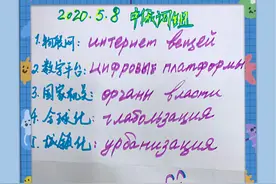 2020.5.8 中俄词组
1.物联网: интернет вещей
2.数字平台: цифровые платформы
3.国家机关: органы власти
4.全球化: глобализация
5.城镇化: урбанизация